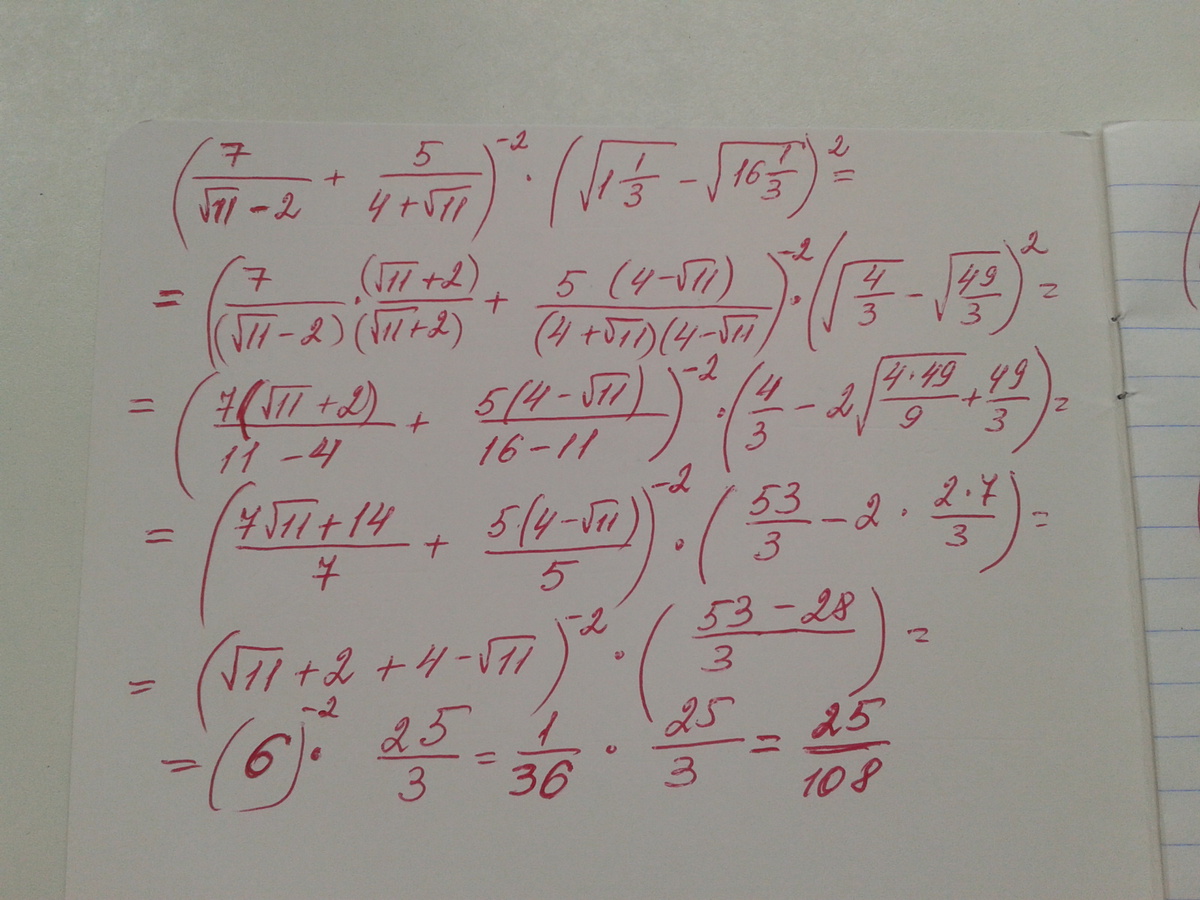 (7/(√11 − 2) + 5/(4 + √11))^−2 · (√(1 1/3) − √(16 1/3))^2 =
= (7/(√11 − 2) · (√11 + 2)/(√11 + 2) + 5 (4 − √11)/((4 + √11)(4 − √11)))^−2 · (√(4/3) − √(49/3))^2 =
= (7(√11 + 2)/(11 − 4) + 5(4 − √11)/(16 − 11))^−2 · (4/3 − 2√(4·49/9) + 49/3) =
= ((7√11 + 14)/7 + 5·(4 − √11)/5)^−2 · (53/3 − 2 · 2·7/3) =
= (√11 + 2 + 4 − √11)^−2 · ((53 − 28)/3) =
= (6)^−2 · 25/3 = 1/36 · 25/3 = 25/108